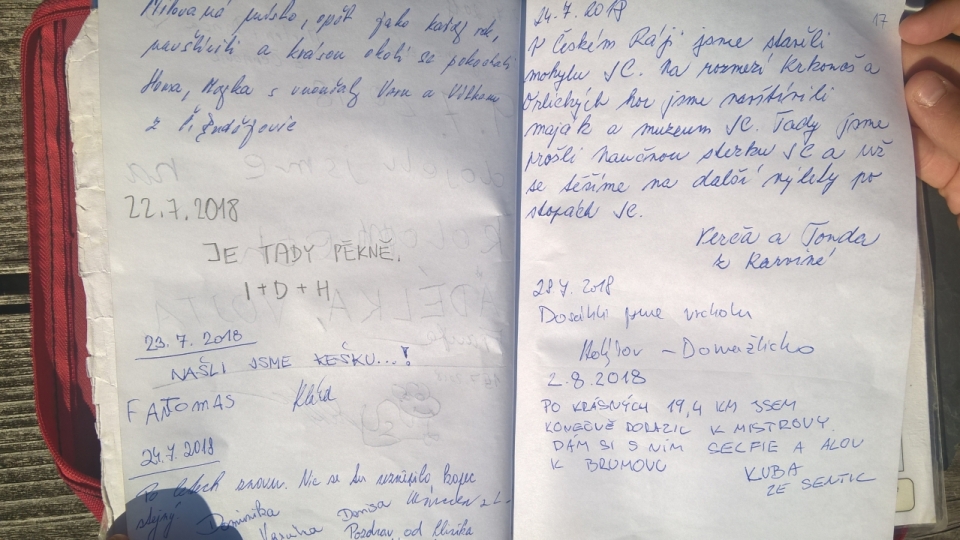 opět jako každý rok,
navštívili a krásou okolí se pokochali
Honza, Majka s vnoučaty
z
22.7.2018
JE TADY PĚKNĚ.
I+D+H
23.7.2018
NAŠLI JSME KEŠKU...!
FANTOMAS Klára
24.7.2018
Po letech znovu. Nic se tu nezměnilo kopec
stejný Dominika
Pozdrav od
24.7.2018
17
V Českém Ráji jsme slavili
mohylu JC. Na rozmezí Krkonoš a
Orlických hor jsme navštívili
maják a muzeum JC. Tady jsme
prošli naučnou stezku JC a už
se těšíme na další výlety po
stopách JC.
Verča a Tonda
z Karviné
29.7.2018
Dosáhli jsme vrcholu
– Domažlicko
2.8.2018
PO KRÁSNÝCH 19,4 KM JSEM
KONEČNĚ DORAZIL K MISTROVI.
DÁM SI S NÍM SELFIE A
K BRUMOVU
KUBA
ZE SENTIC